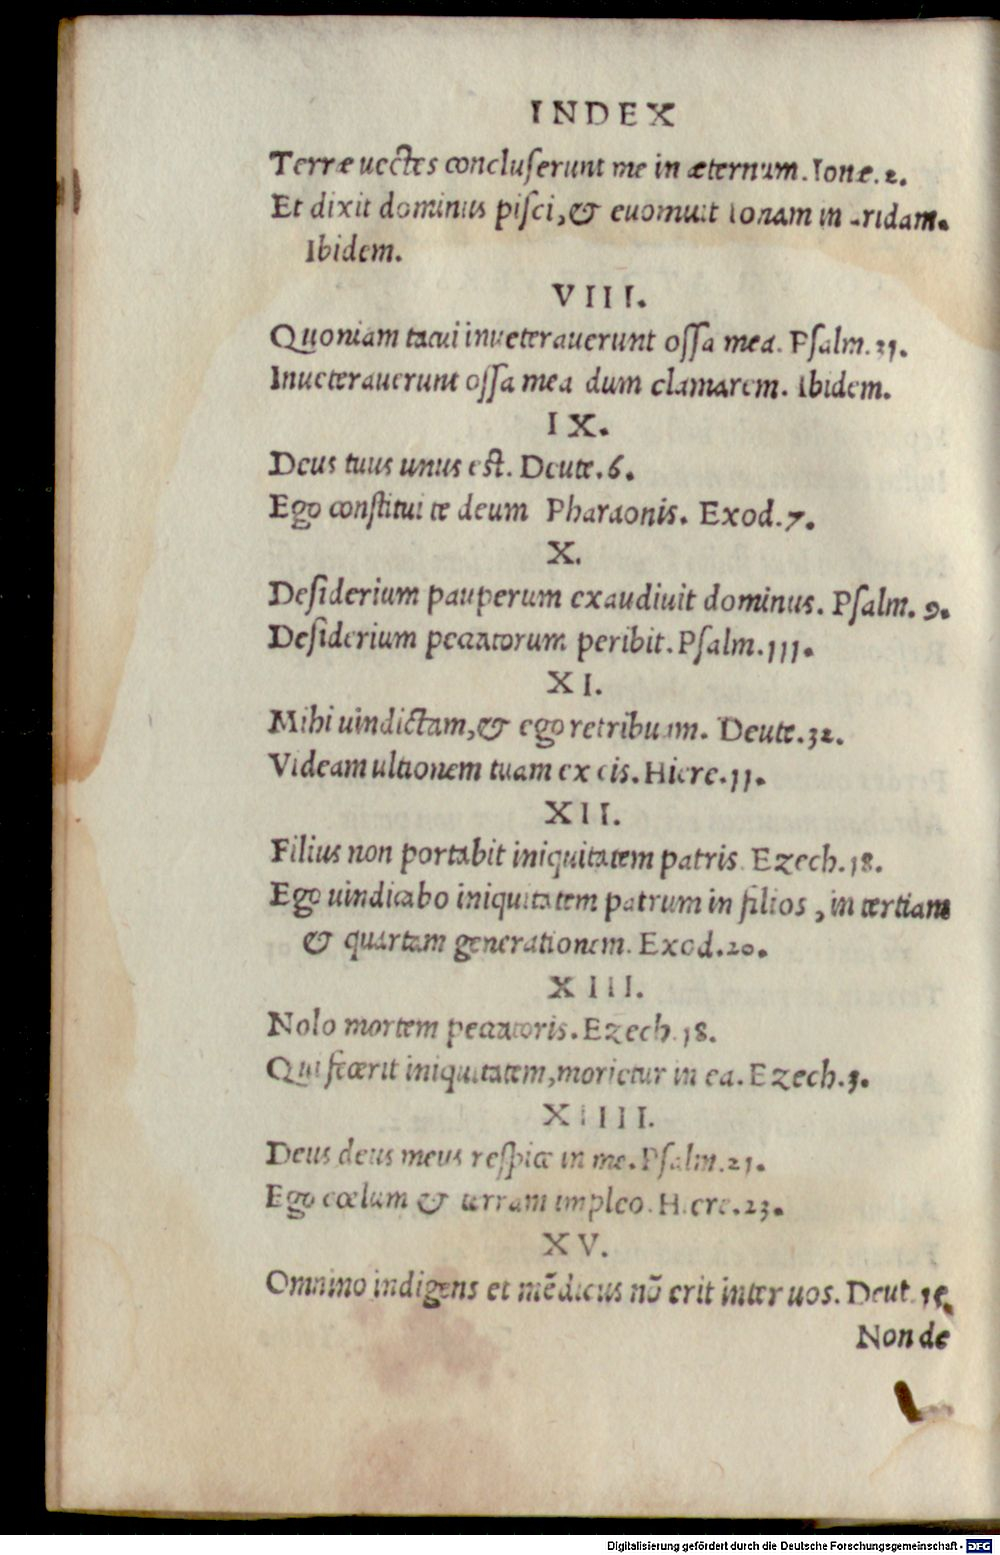 INDEX
Terræ uectes concluſerunt me in æternum. Ionæ. 2.
Et dixit dominus piſci, & euomuit Ionam in aridam.
Ibidem.
VIII.
Quoniam tacui inueterauerunt oſſa mea. Pſalm. 31.
Inueterauerunt oſſa mea dum clamarem. Ibidem.
IX.
Deus tuus unus est. Deute. 6.
Ego conſtitui te deum Pharaonis. Exod. 7.
X.
Deſiderium pauperum exaudiuit dominus. Pſalm. 9.
Deſiderium peccatorum peribit. Pſalm. 111.
XI.
Mihi uindictam, & ego retribuam. Deute. 32.
Videam ultionem tuam ex eis. Hiere. 11.
XII.
Filius non portabit iniquitatem patris. Ezech. 18.
Ego uindicabo iniquitatem patrum in filios, in tertiam
& quartam generationem. Exod. 20.
XIII.
Nolo mortem peccatoris. Ezech. 18.
Qui fecerit iniquitatem, morietur in ea. Ezech. 3.
XIIII.
Deus deus meus reſpice in me. Pſalm. 21.
Ego cœlum & terram impleo. Hiere. 23.
XV.
Omnino indigens et mēdicus nō erit inter uos. Deut. 15.
Non de
Digitalisierung gefördert durch die Deutsche Forschungsgemeinschaft - DFG